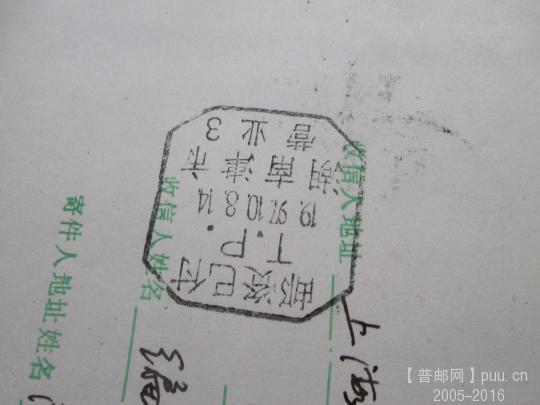 邮资已付
T.P.
19.97.10.8.14
湖南津市
营业 3
收信人地址
上海
收信人姓名
寄件人地址姓名
【普邮网】puu.cn
2005-2016